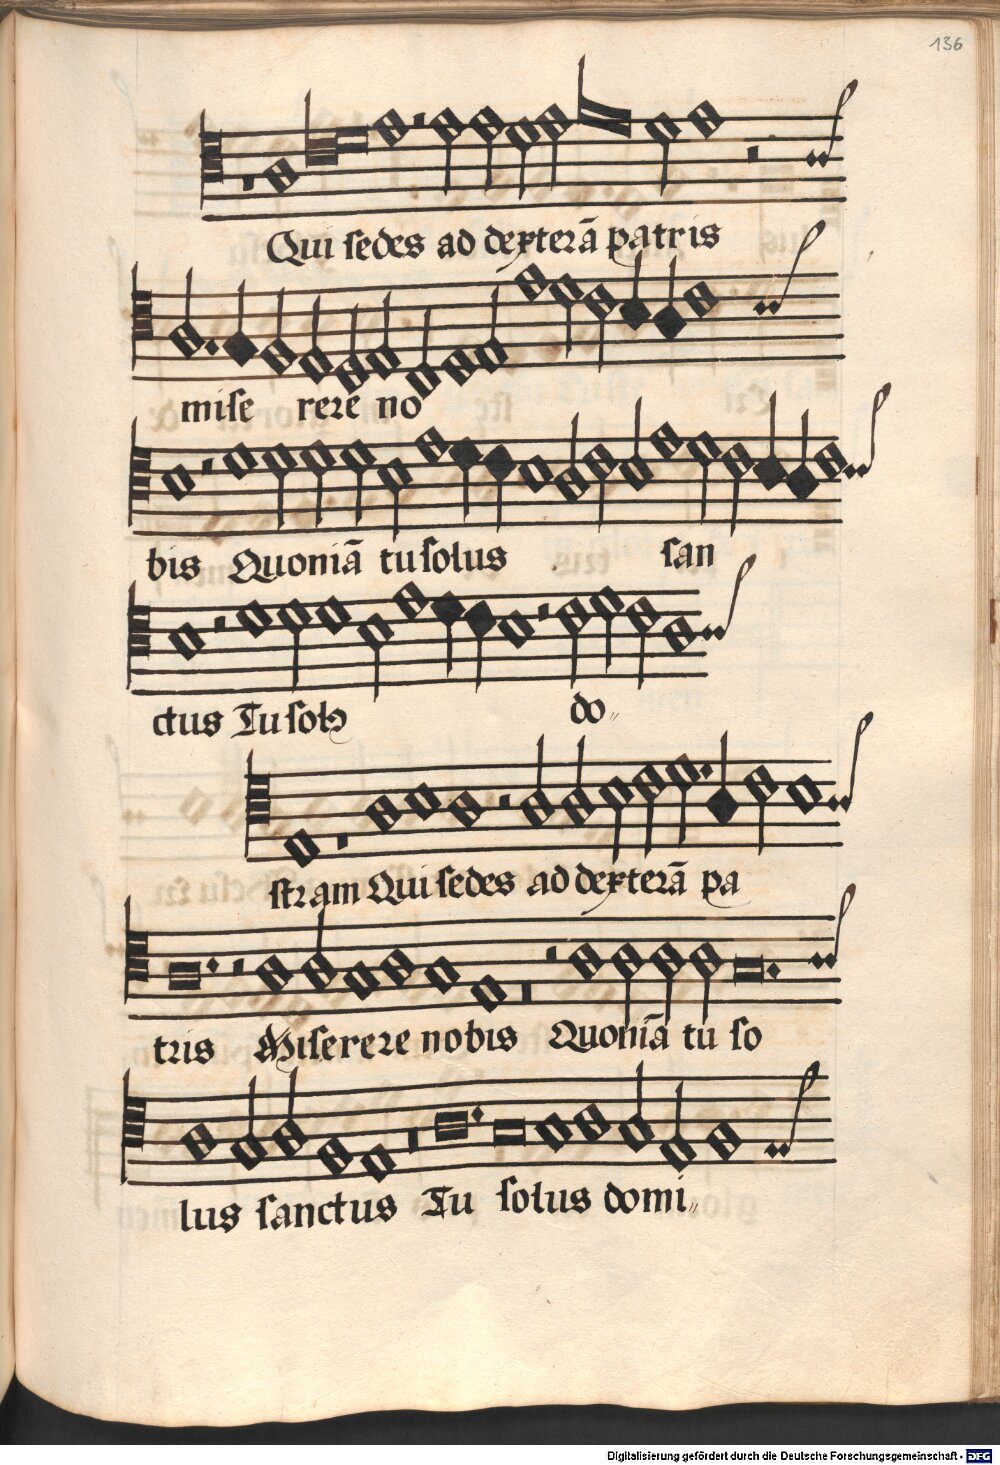 136
Qui sedes ad dexterā patris
mise rere no
bis Quoniā tu solus san
ctus Tu solꝰ do〃
stram Qui sedes ad dexterā pa
tris Miserere nobis Quoniā tu so
lus sanctus Tu solus domi〃
Digitalisierung gefördert durch die Deutsche Forschungsgemeinschaft - DFG